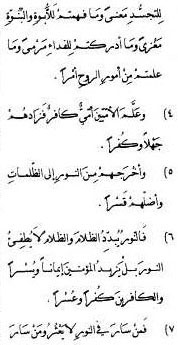 لِلتجسُّدِ معنىً وَمَا فَهِمتُمْ لِلأُبُوَّةِ وَالبُنُوَّةِ
مَغْزىً وَمَا أَدْرَكتُمْ لِلفِدَاءِ مَرْمىً وَمَا
عَلِمْتُمْ مِنْ أُمُورِ الرُّوحِ أَمْراً .
٤) وَعَلَّمَ الأُمِّيِّينَ أُمِّيٌّ كَافِرٌ فَزَادَهُمْ
جَهْلاً وَكُفْراً .
٥) وَأَخْرَجَهُمْ مِنَ النُّورِ إِلَى الظُّلُمَاتِ
وَأَضَلَّهُمْ قَسْراً .
٦) فَالنُّورُ يُبَدِّدُ الظَّلَامَ وَالظَّلَامُ لَا يُطْفِئُ
النُّورَ بَلْ يَزِيدُ المُؤْمِنِينَ إِيمَاناً وَيُسْراً
وَالكَافِرِينَ كُفْراً وَعُسْراً .
٧) فَمَنْ سَارَ فِي النُّورِ لَا يَعْثُرُ وَمَنْ سَارَ